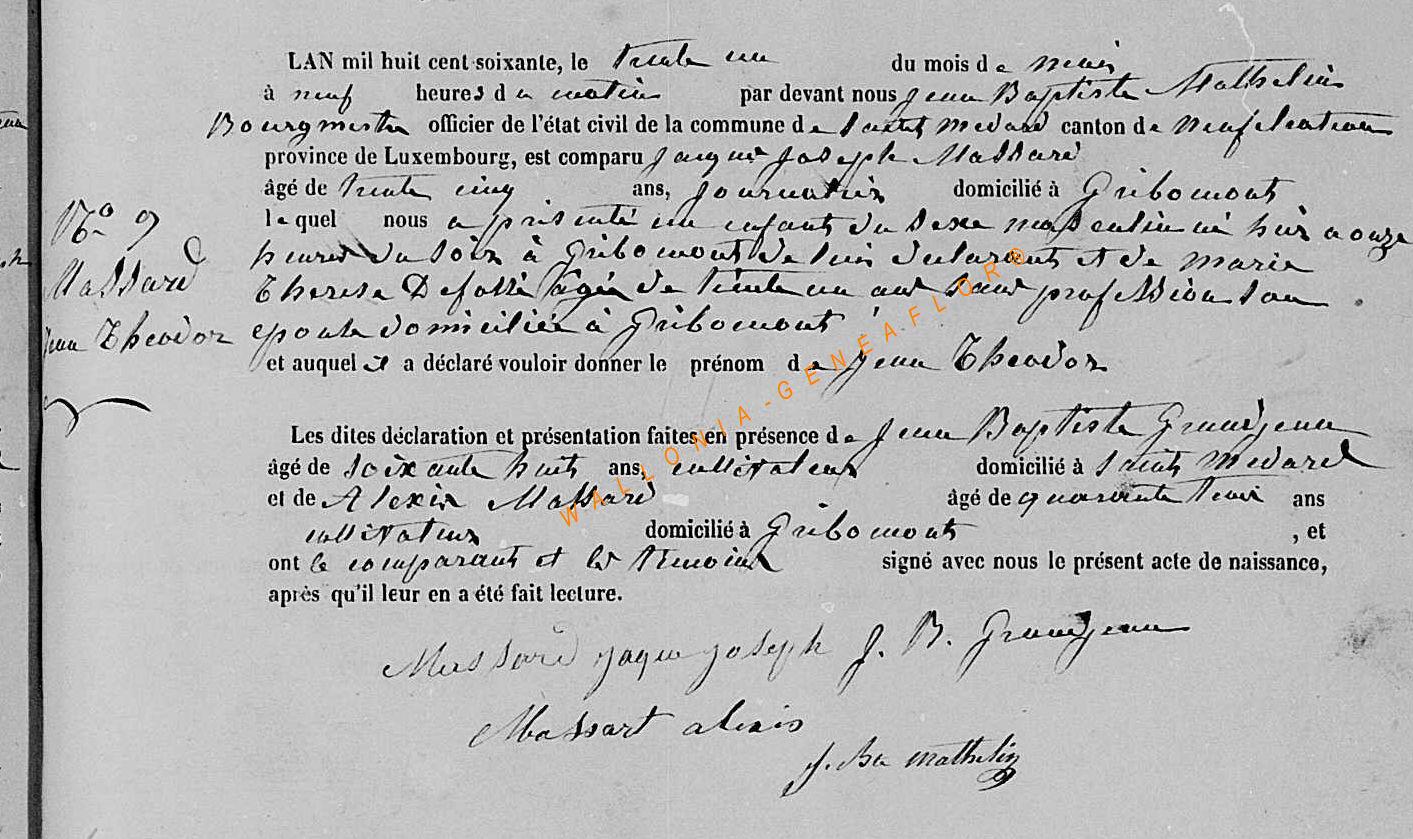 LAN mil huit cent soixante, le trente un du mois de
à neuf heures du matin par devant nous Jean Baptiste Mathelin
Bourgmestre officier de l'état civil de la commune de Saint Medard canton de Neufchateau
province de Luxembourg, est comparu Jaque Joseph Massard
âgé de trente cinq ans, Journalier domicilié à Gribomont
lequel nous a présenté un enfant du sexe masculin né hier a onze
heures du soir à Gribomont de lui declarant et de marie
Therese Defossé agée de trente un ans sans profession son
epouse domiciliée à Gribomont
et auquel il a déclaré vouloir donner le prénom de Jean Theodor
No 9
Massard
Jean Theodor
Les dites déclaration et présentation faites en présence de Jean Baptiste Grandjean
âgé de soixante huit ans, cultivateur domicilié à Saint Medard
et de Alexis Massard âgé de quarante trois ans
cultivateur domicilié à Gribomont , et
ont le comparant et les temoins signé avec nous le présent acte de naissance,
après qu'il leur en a été fait lecture.
Massard jaque joseph J. B. Grandjean
Massart alexis
J. Bte mathelin
WALLONIA-GENEAFLOR®